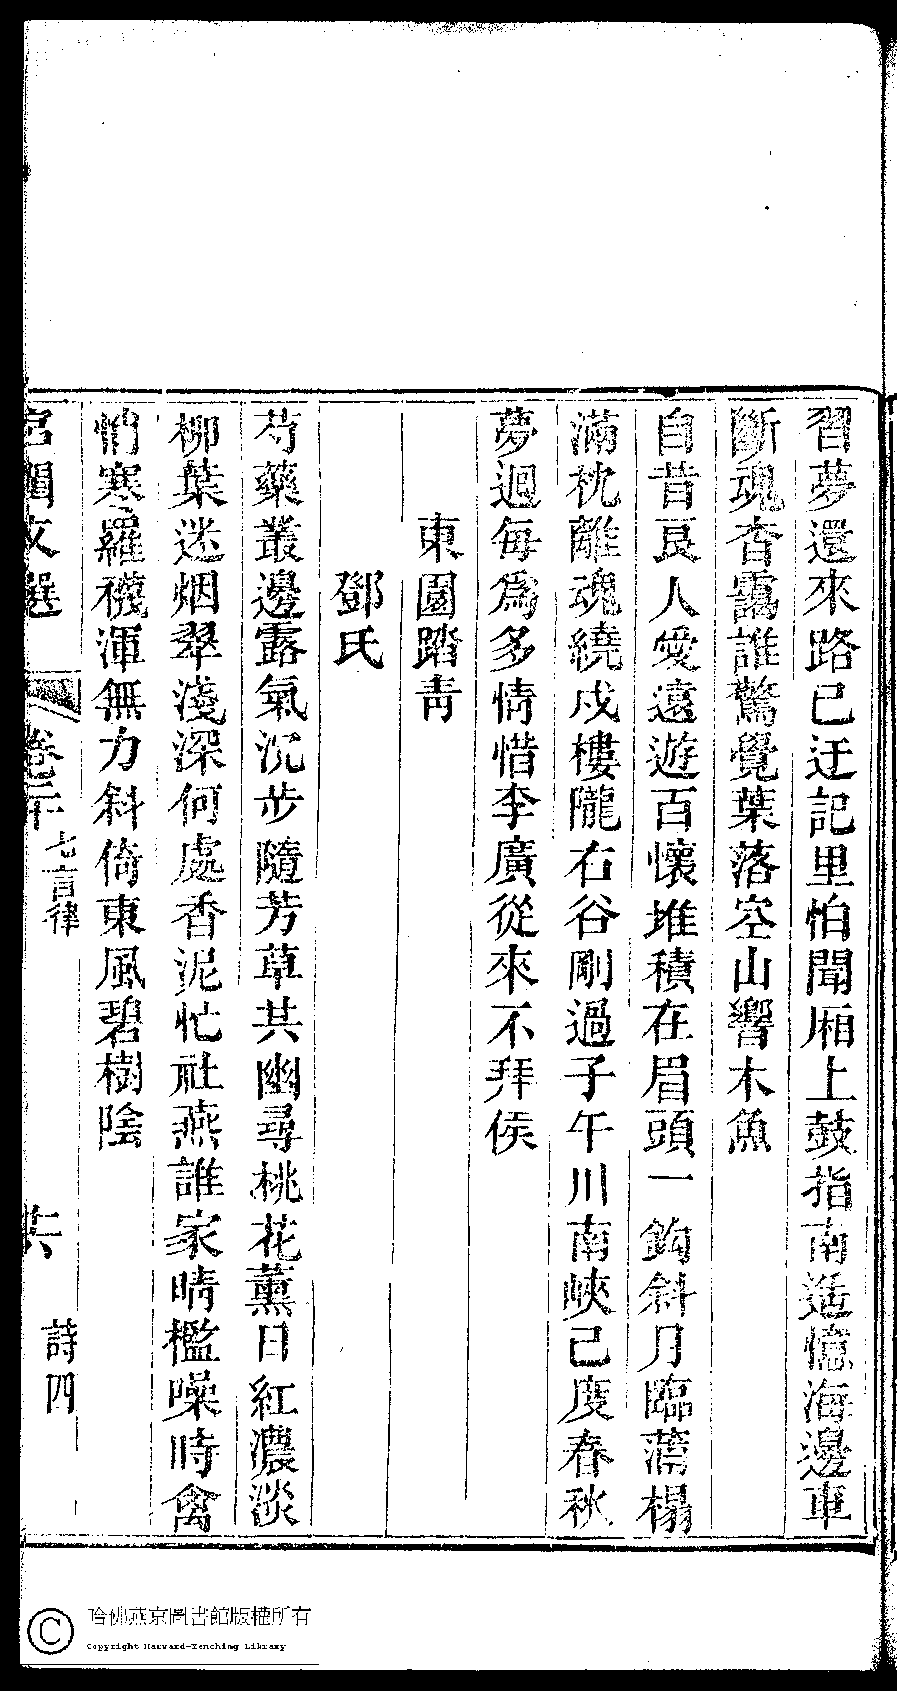 習夢還來路已迂記里怕聞廂上鼓指南遥憶海邊車
斷魂杳靄誰驚覺葉落空山響木魚
自昔良人愛遠遊百懷堆積在眉頭一鈎斜月臨蓆榻
滿枕離魂繞戍樓隴右谷剛過子午川南峽已度春秋
夢迴每爲多情惜李廣從來不拜侯
東園踏青
鄧氏
芍藥叢邊露氣沉步隨芳草共幽尋桃花薰日紅濃淡
柳葉迷烟翠淺深何處香泥忙社燕誰家晴檻噪時禽
悄寒羅襪渾無力斜倚東風碧樹陰
宮閨文選
卷二十
七言律
廿六
詩四
哈佛燕京圖書館版權所有
Copyright Harvard-Yenching Library